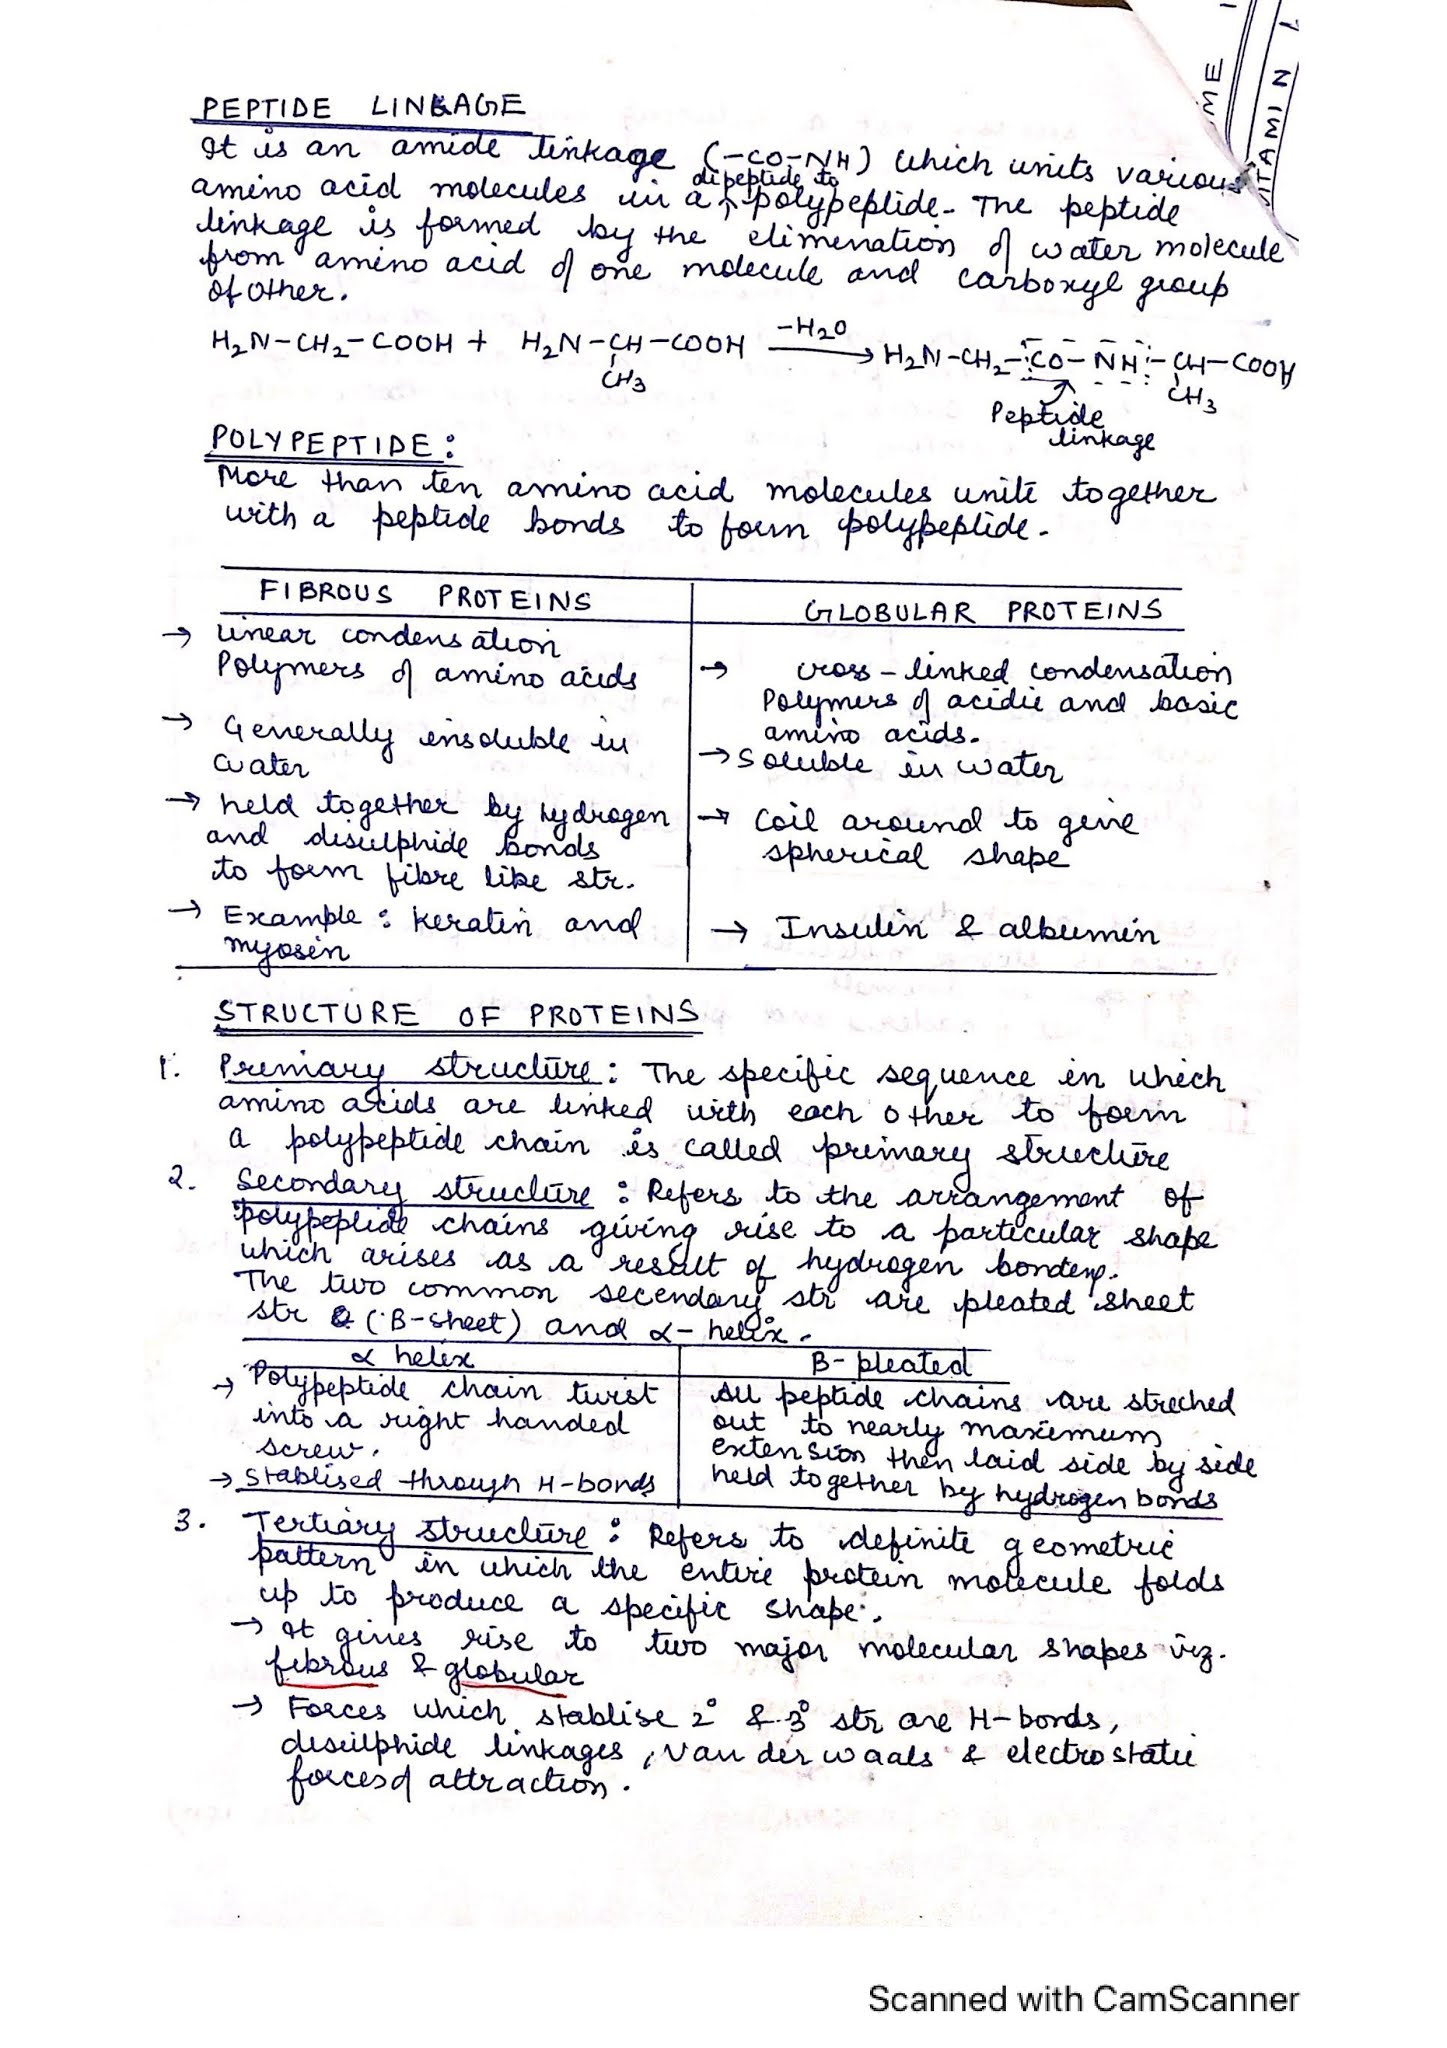 ME
VITAMIN
PEPTIDE LINKAGE
It is an amide linkage (-CO-NH) which units various
dipeptide to
amino acid molecules in a polypeptide. The peptide
linkage is formed by the elimenation of water molecule
from amino acid of one molecule and carboxyl group
of other.
H₂N-CH₂-COOH + H₂N-CH-COOH -H₂O → H₂N-CH₂-CO-NH-CH-COOH
CH₃ CH₃
Peptide
linkage
POLYPEPTIDE:
More than ten amino acid molecules unite together
with a peptide bonds to form polypeptide.
FIBROUS PROTEINS
→ linear condensation
Polymers of amino acids
→ Generally insoluble in
water
→ held together by hydrogen
and disulphide bonds
to form fibre like str.
→ Example: keratin and
myosin
GLOBULAR PROTEINS
→ cross-linked condensation
Polymers of acidic and basic
amino acids.
→ Soluble in water
→ Coil around to give
spherical shape
→ Insulin & albumin
STRUCTURE OF PROTEINS
1. Primary structure: The specific sequence in which
amino acids are linked with each other to form
a polypeptide chain is called primary structure
2. Secondary structure: Refers to the arrangement of
polypeptide chains giving rise to a particular shape
which arises as a result of hydrogen bonding.
The two common secendary str are pleated sheet
str (B-sheet) and α-helix.
α helix
→ Polypeptide chain twist
into a right handed
screw.
→ Stablised through H-bonds
B-pleated
All peptide chains are streched
out to nearly maximum
extension then laid side by side
held together by hydrogen bonds
3. Tertiary structure: Refers to definite geometric
pattern in which the entire protein molecule folds
up to produce a specific shape.
→ It gives rise to two major molecular shapes viz.
fibrous & globular
→ Forces which stablise 2° & 3° str are H-bonds,
disulphide linkages, Van der waals & electrostatic
forces of attraction.
Scanned with CamScanner